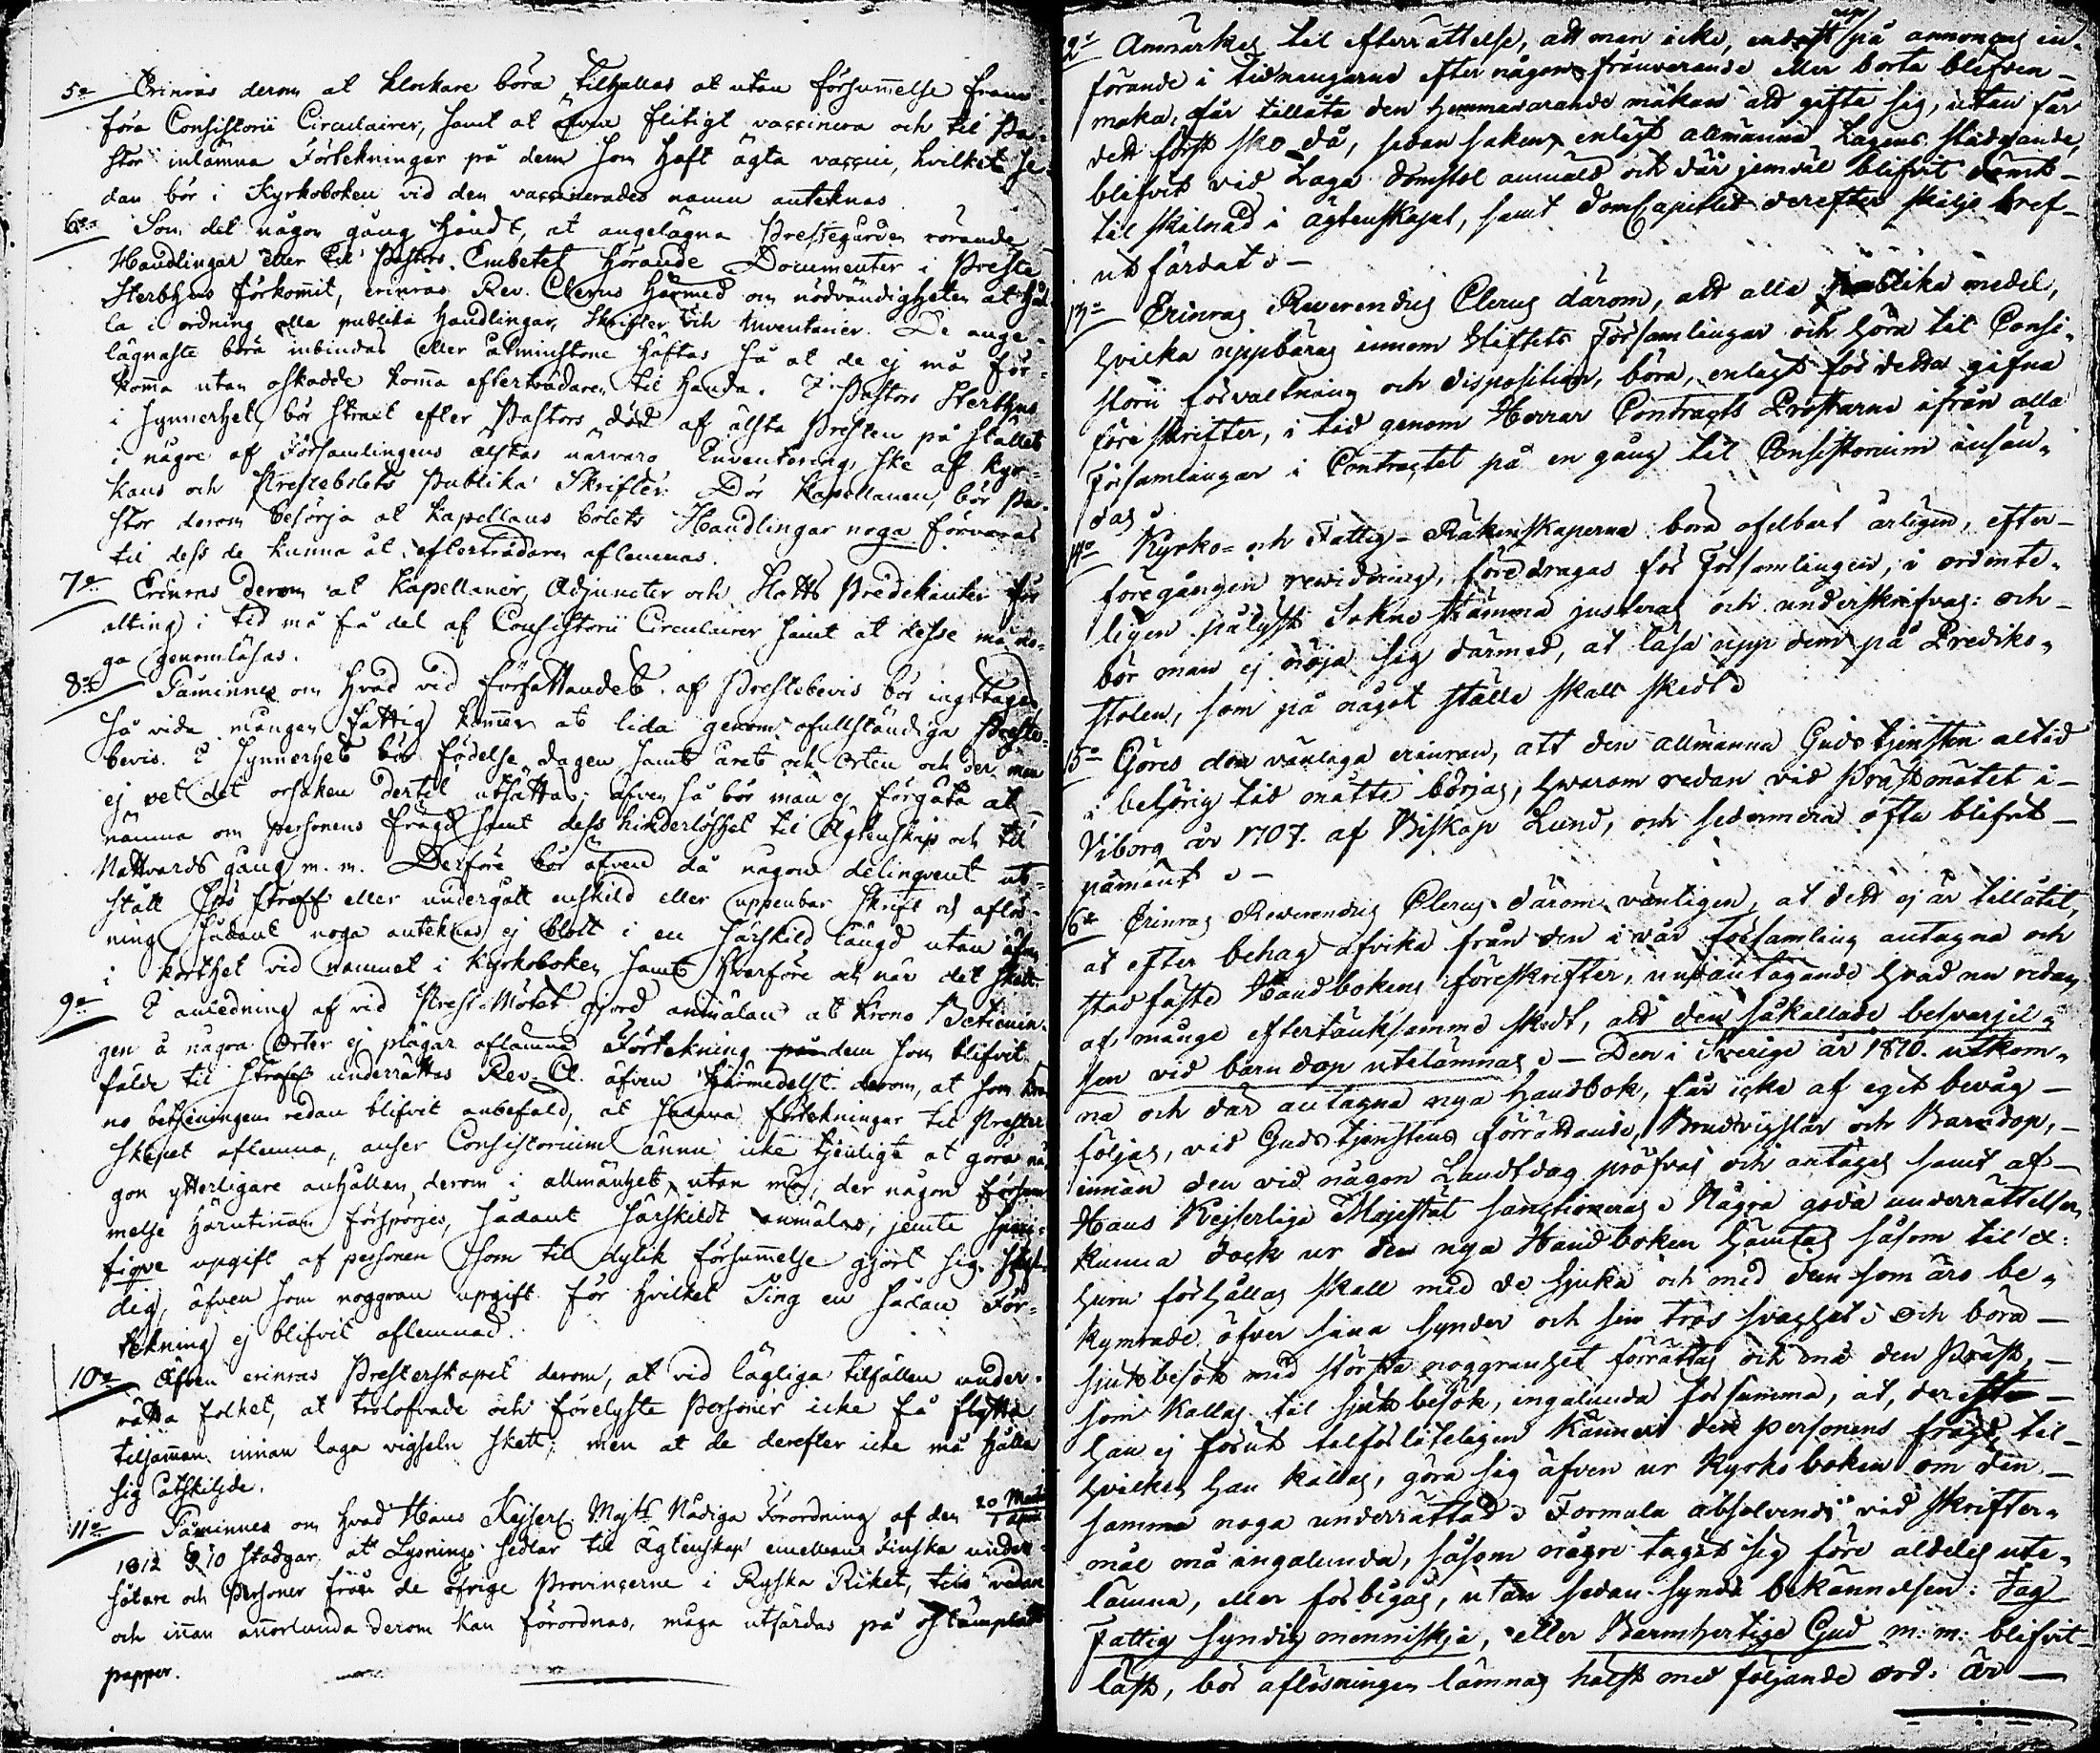 5o Erinras derom at klockare böra tilhållas at utan försummelse fram-
föra Consistorii Circulairer, samt at äfven flitigt vaccinera och til Pa-
stor inlämna Förtekningar på dem som haft ägta vaccin, hvilket se-
dan bör i Kyrkoboken vid den vaccinerades namn anteknas.
6o Som det någon gång händt, at angelägna Prestegården rörande
Handlingar eller til Pastors Embetet hörande Documenter i Preste
Sterbhus förkommit, erinras Rev. Clerus härmed om nödvändigheten at hål-
la i ordning alla publika Handlingar, Skrifter och Inventarier. De ange-
lägnaste böra inbindas eller åtminstone häftas så at de ej må för-
komma utan oskadde komma efterträdaren til handa. I Pastors Sterbhus
i synnerhet bör straxt efter Pastors död af älsta Presten på stället
i någre af Församlingens älstas närvaro Inventering ske af kyr-
kans och Prestebolets Publika Skrifter. Dör Kapellanen, bör Pa-
stor derom besörja at Kapellans bolets Handlingar noga förvaras
til dess de kunna åt efterträdaren aflemnas.
7o Erinras derom at Kapellaner, Adjuncter och Slotts Predikanter för
alting i tid må få del af Consistorii Circulairer samt at desse må no-
ga genomläsas.
8o Påminnes om hvad vid författandet af Prestebevis bör ingttagas
så vida mången fattig kommer at lida genom ofullständiga Preste-
bevis. I synnerhet bör födelse dagen samt året och orten och der man
ej vet det orsaken dertil utsättas; äfven så bör man ej förgäta at
nämna om personens frägd samt dess hinderlöshet til Ägtenskap och til
Nattvards gång m. m. Derföre bör äfven då någon delinqvent ut-
stått straff eller undergått enskild eller uppenbar skrift och aflös-
ning sådant noga anteknas ej blott i en särskild längd utan äfven
i korthet vid namnet i Kyrkoboken samt hvarföre och när det skett.
9o I anledning af vid Prest-Mötet gjord anmälan at Krono Betienin-
gen å några Orter ej plägar aflämna Förtekning på dem som blifvit
fälde til straff underrättas Rev. Cl. äfven härmedelst derom, at som Kro-
no betieningen redan blifvit anbefald, at sådana förtekningar til Prester-
skapet aflemna, anser Consistorium ännu icke tjenligt at göra nå-
gon ytterligare anhållan derom i allmänhet, utan må, der någon försum-
melse härutinnan förspörjes, sådant särskildt anmälas, jemte speci-
fique upgift af personen som til dylik försummelse gjort sig skyl-
dig, äfven som noggran upgift för hvilket Ting en sådan För-
tekning ej blifvit aflemnad.
10o Äfven erinras Presterskapet derom, at vid lägliga tilfällen under-
rätta folket, at trolofvade och förelyste Personer icke få flytta
tilsamman innan laga vigseln skett; men at de derefter icke må hålla
sig åtskilde.
11o Påminnes om hvad Hans Kejserl. Majts Nådiga Förordning af den 20 Mart. 1 April
1812 § 10 stadgar, at Lysnings sedlar til Ägtenskap emellan Finska under-
såtare och Personer från de öfrige Provincerne i Ryska Riket, tils vidare
och innan annorlunda derom kan förordnas, måga utfärdas på ostämpladt
papper.
12o Anmärkes til efterrättelse, att man icke, endast på annoncens in-
förande i tidningarne efter någons frånvarande eller borta blifven
maka, får tillåta den hemmavarande makan att gifta sig, utan får
dett först ske då, sedan saken enligt allmänna Lagens stadgande,
blifvit vid Laga domstol anmäld och där jemväl blifvit dömt
til skilnad i ägtenskapet, samt DomCapitlet derefter skiljo bref
utfärdat.
13o Erinras Reverendus Clerus därom, att alla publika medel,
hvilka uppbäras innom Stiftets Församlingar och höra til Consi-
storii förvaltning och disposition, böra, enligt för detta gifna
föreskrifter, i tid genom Herrar Contracts Prostarne ifrån alla
Församlingar i Contractet på en gång til Consistorium insän-
das.
14o Kyrko- och Fattig-Räkenskaperna böra ofelbart årligen, efter
föregången revidering, föredragas för Församlingen, i ordente-
ligen pålyst Sokne stämma justeras och underskrifvas: och
bör man ej nöja sig därmed, at läsa upp dem på Prediko-
stolen, som på något ställe skall skedt.
15o Göres den vänliga erinran, att den allmänna Gudstjensten altid
i behörig tid måtte börjas, hvarom redan vid Prästmötet i
Viborg år 1707. af Biskop Lund, och sedermera ofta blifvit
påmint.
16o Erinras Reverendus Clerus därom vänligen, at dett ej är tillåtit,
at efter behag afvika från den i vår Församling antagna och
stadfäste Handbokens föreskrifter, undantagande hvad nu redan
af månge eftertänksamme skedt, att den såkallade besvärjel-
sen vid barndop utelämnas. Den i Sverige år 1810. utkom-
na och där antagna nya handbok, får icke af eget bevåg
följas, vid Gudstjenstens förrättande, Brudvigslar och Barndop,
innan den vid någon Landtdag pröfvas och antages samt af
Hans Kejserliga Majestät sanctioneras. Några goda underrättelser
kunna dock ur den nya Handboken hämtas såsom til Ex:
huru förhållas skall med de sjuka och med dem som äro be-
kymrade öfver sina synder och sin tros svaghet och böra
sjukbesök med största noggranhet förrättas och må den Präst,
som kallas til sjukbesök, ingalunda försumma, at, der
han ej förut tilförlåteligen känner den personens frägd, til
hvilken han kallas, göra sig äfven ur Kyrkoboken om den
samma noga underrättad. Formula absolvendi vid skrifter-
mål må ingalunda, såsom någre tagit sig före aldeles ute-
lämna, eller förbigås, utan sedan synda bekännelsen: Jag
Fattig syndig menniskja, eller Barmhertige Gud m: m: blifvit
läst, bör aflösningen lämnas hälst med följande ord: Är